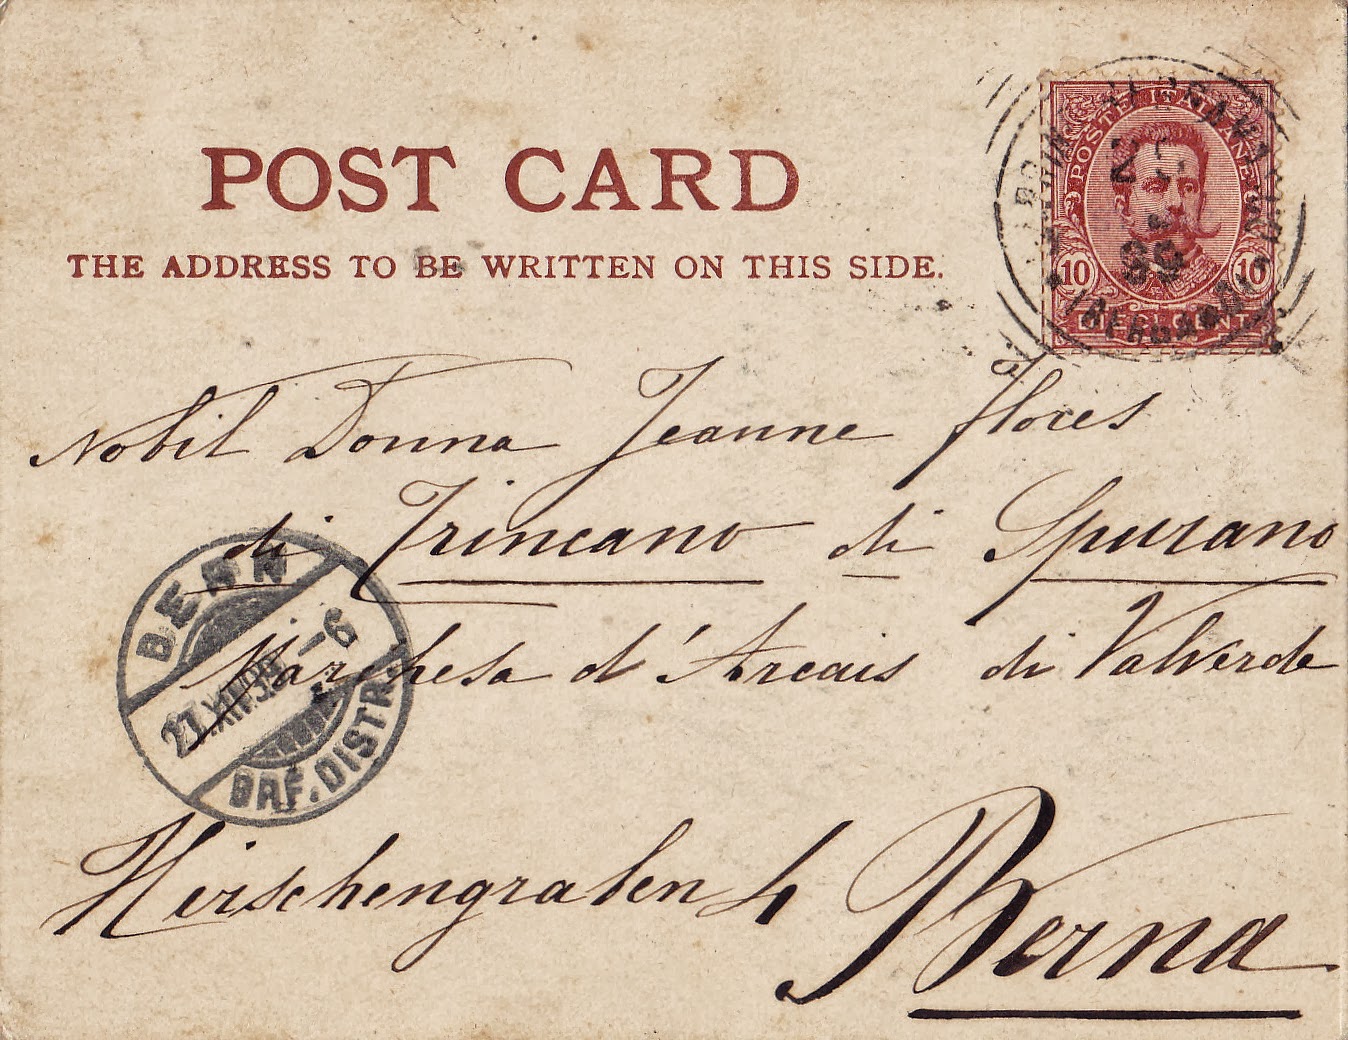 POST CARD
THE ADDRESS TO BE WRITTEN ON THIS SIDE.
POSTE ITALIANE
10 10
DIECI CENT
99
Nobil Donna Jeanne Flores
di Trincano di Spurano
Marchesa d'Arcais di Valverde
BERN
27.XII.99.-6
BRF. DISTR.
Hirschengraben 4
Berna